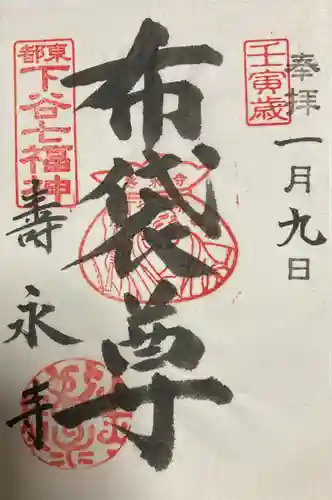 奉拝
壬寅歳
一月九日
布袋尊
東都
下谷七福神
壽永寺